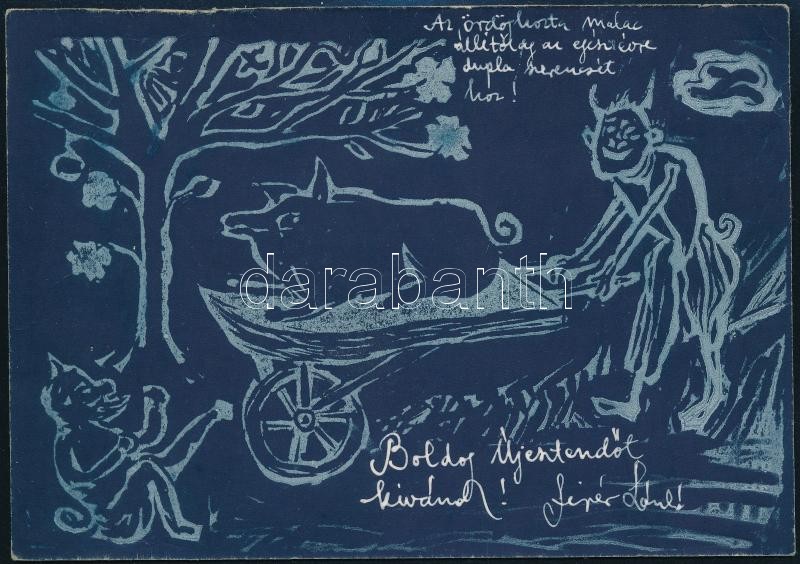 Az ördöghozta malac
állítólag az egész évre
dupla szerencsét
hoz!
darabanth
Boldog Újesztendőt
kívánok!